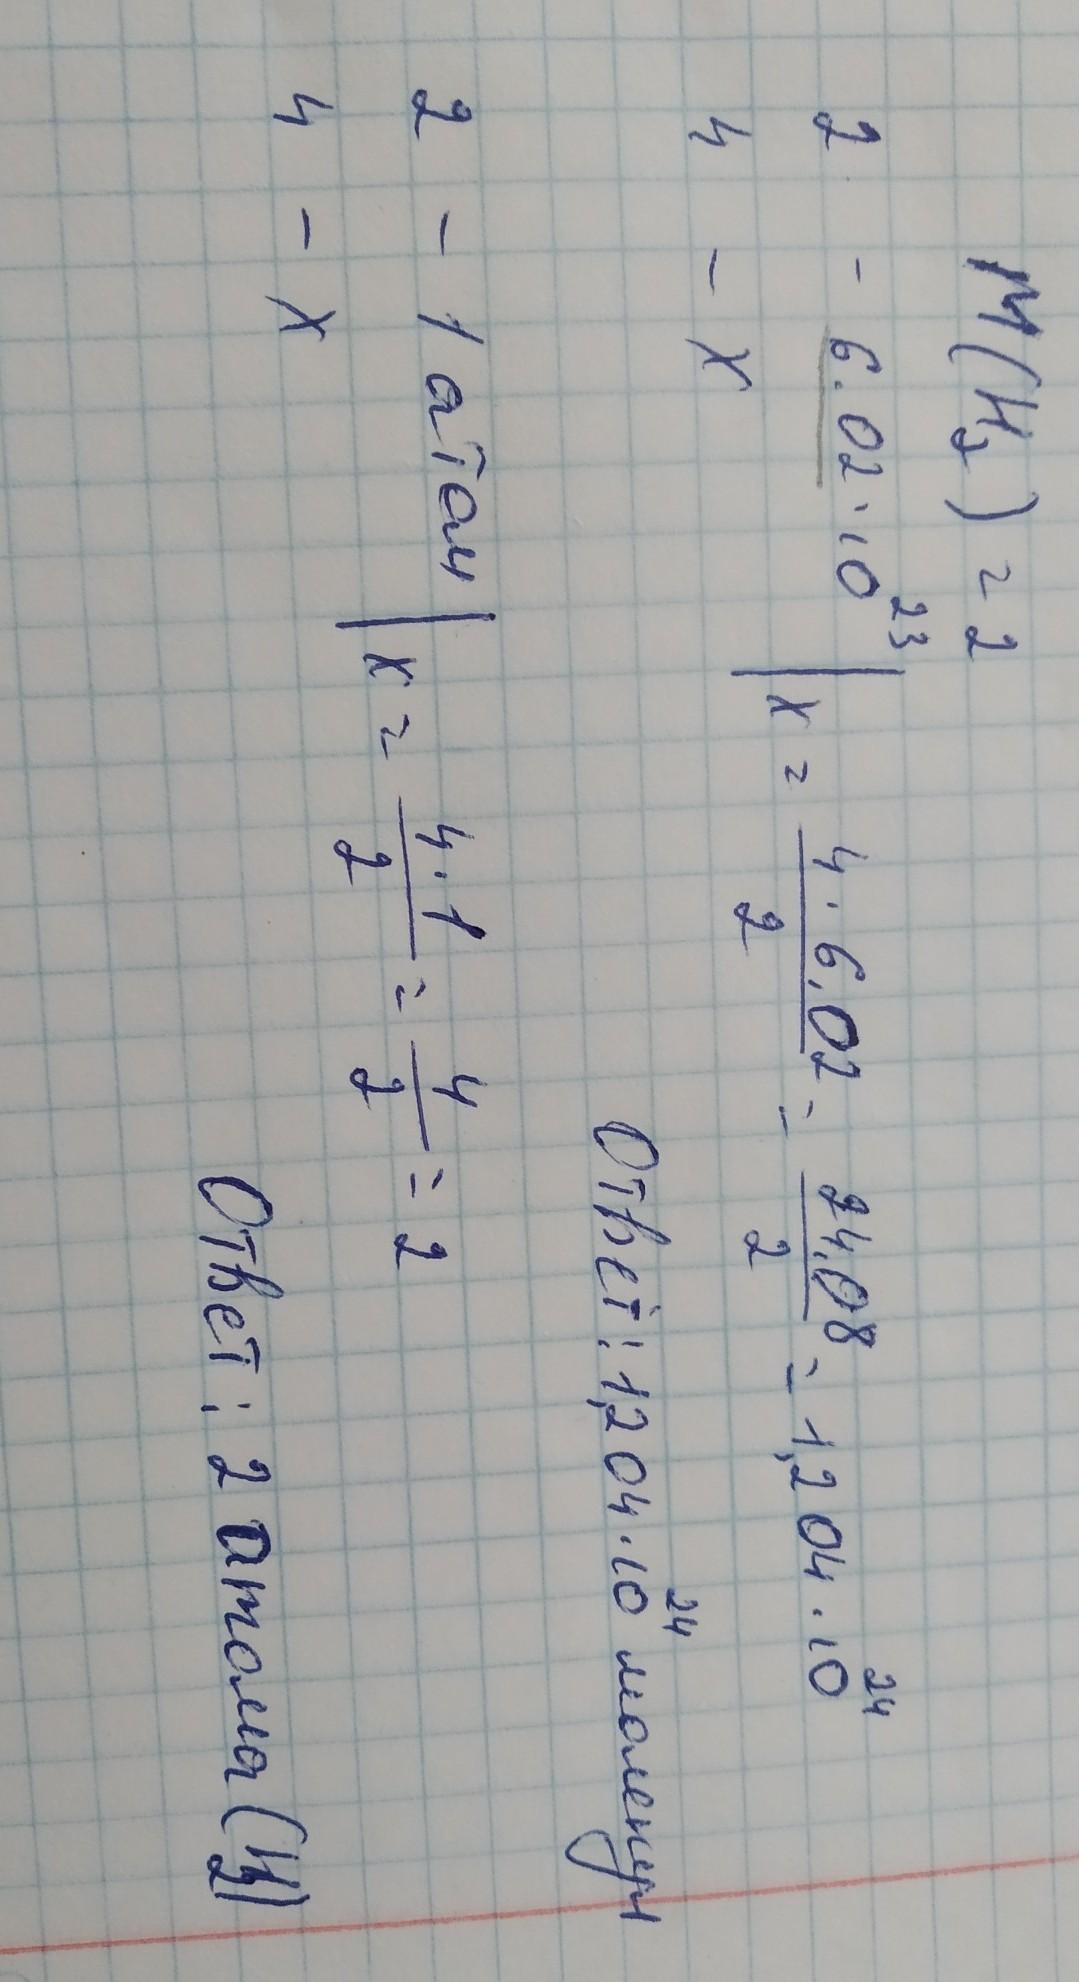 M(H₂) = 2
2 - 6.02·10²³ | x = 4·6.02/2 = 24.08/2 = 1,204·10²⁴
4 - x
Ответ: 1,204·10²⁴ молекул
2 - 1 атом | x = 4·1/2 = 4/2 = 2
4 - x
Ответ: 2 атома (H₂)